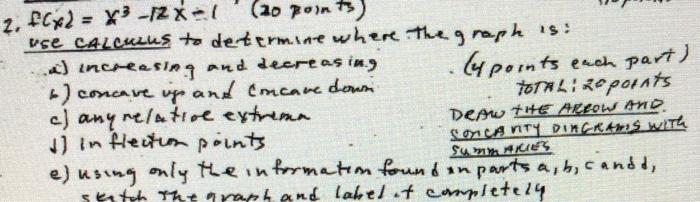 2. f(x) = x³ -12x -1 (20 points)
use CALCULUS to determine where the graph is:
a) increasing and decreasing (4 points each part)
b) concave up and Concave down TOTAL: 20 points
c) any relative extrema DRAW THE ARROW AND
d) Inflection points CONCAVITY DIAGRAMS WITH
SUMMARIES
e) using only the information found in parts a, b, c and d,
sketch the graph and label it completely